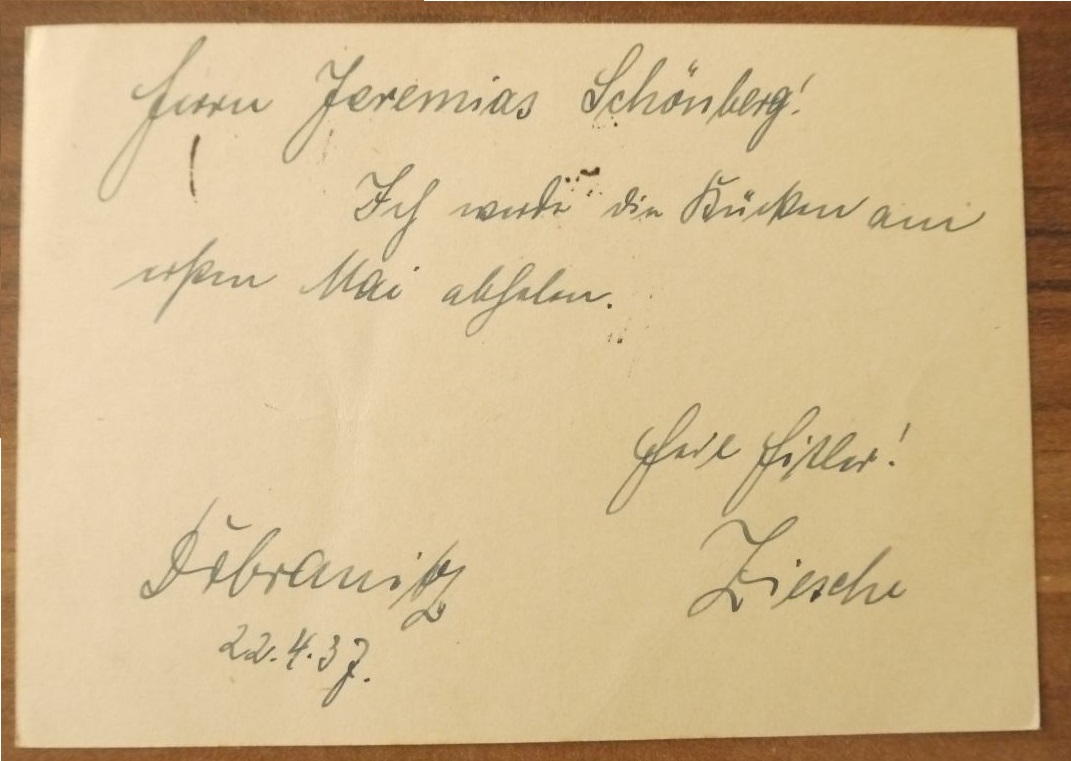 Herrn Jeremias Schönberg!
Ich werde die Kücken am
ersten Mai abholen.
Heil Hitler!
Döbranitz
Ziesche
22.4.37.